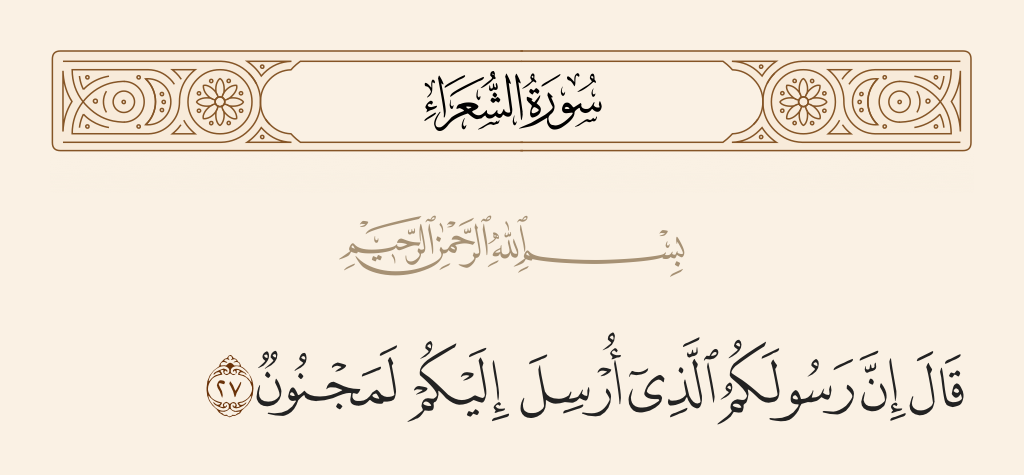 سُورَةُ الشُّعَرَاءِ
بِسْمِ ٱللَّهِ ٱلرَّحْمَٰنِ ٱلرَّحِيمِ
قَالَ إِنَّ رَسُولَكُمُ ٱلَّذِىٓ أُرْسِلَ إِلَيْكُمْ لَمَجْنُونٌ ٢٧